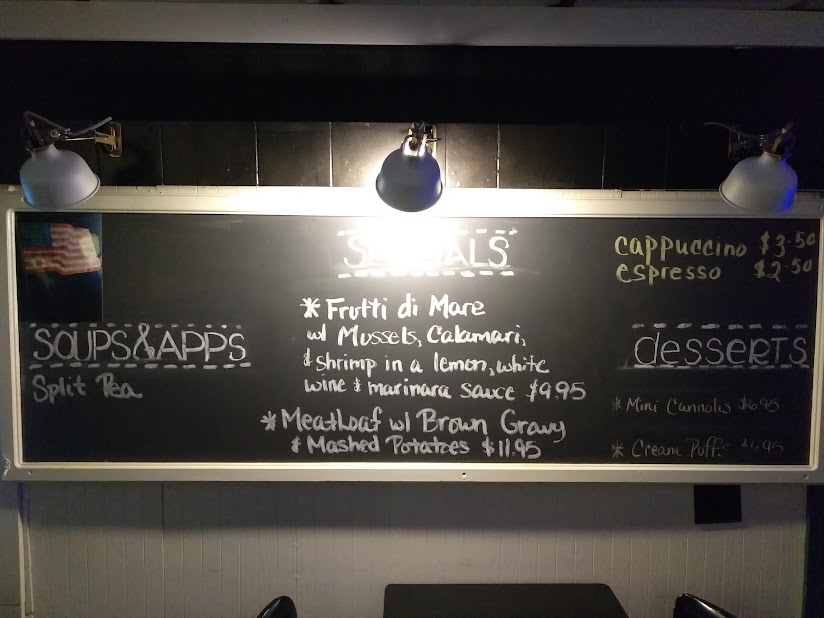 SPECIALS
cappuccino $3.50
espresso $2.50
* Frutti di Mare
w/ Mussels, Calamari,
& shrimp in a lemon, white
wine & marinara sauce $9.95
* Meatloaf w/ Brown Gravy
& Mashed Potatoes $11.95
SOUPS&APPS
Split Pea
desserts
* Mini Cannolis $6.95
* Cream Puffs